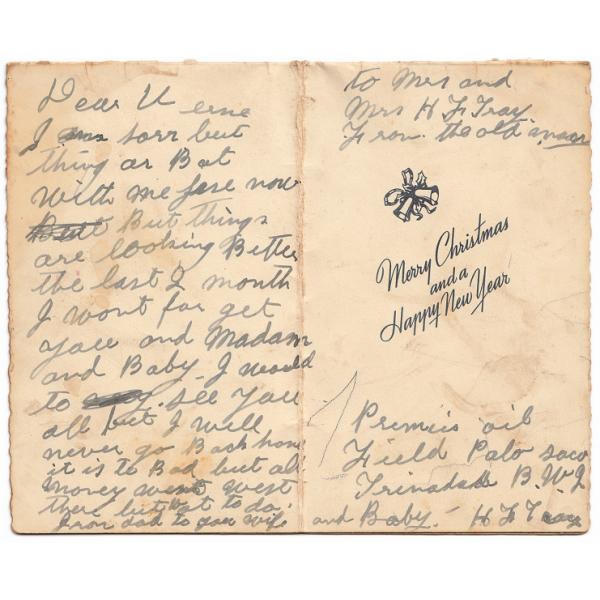 Dear U erne
I am sorr but
thing ar Bat
With me fore now
But But things
are looking Better
the last 2 month
I wont for get
you and Madam
and Baby. I would
to see you
all but I will
never go Back home
it is to Bad but all
money went west
there but wat to do.
From dad to your wife
and Baby.
to Mrs and
Mrs H F Tray
From. the old man
Merry Christmas
and a
Happy New Year
Premiis oil
Field Palo saco
Trinadad B.W.I
H F Tray